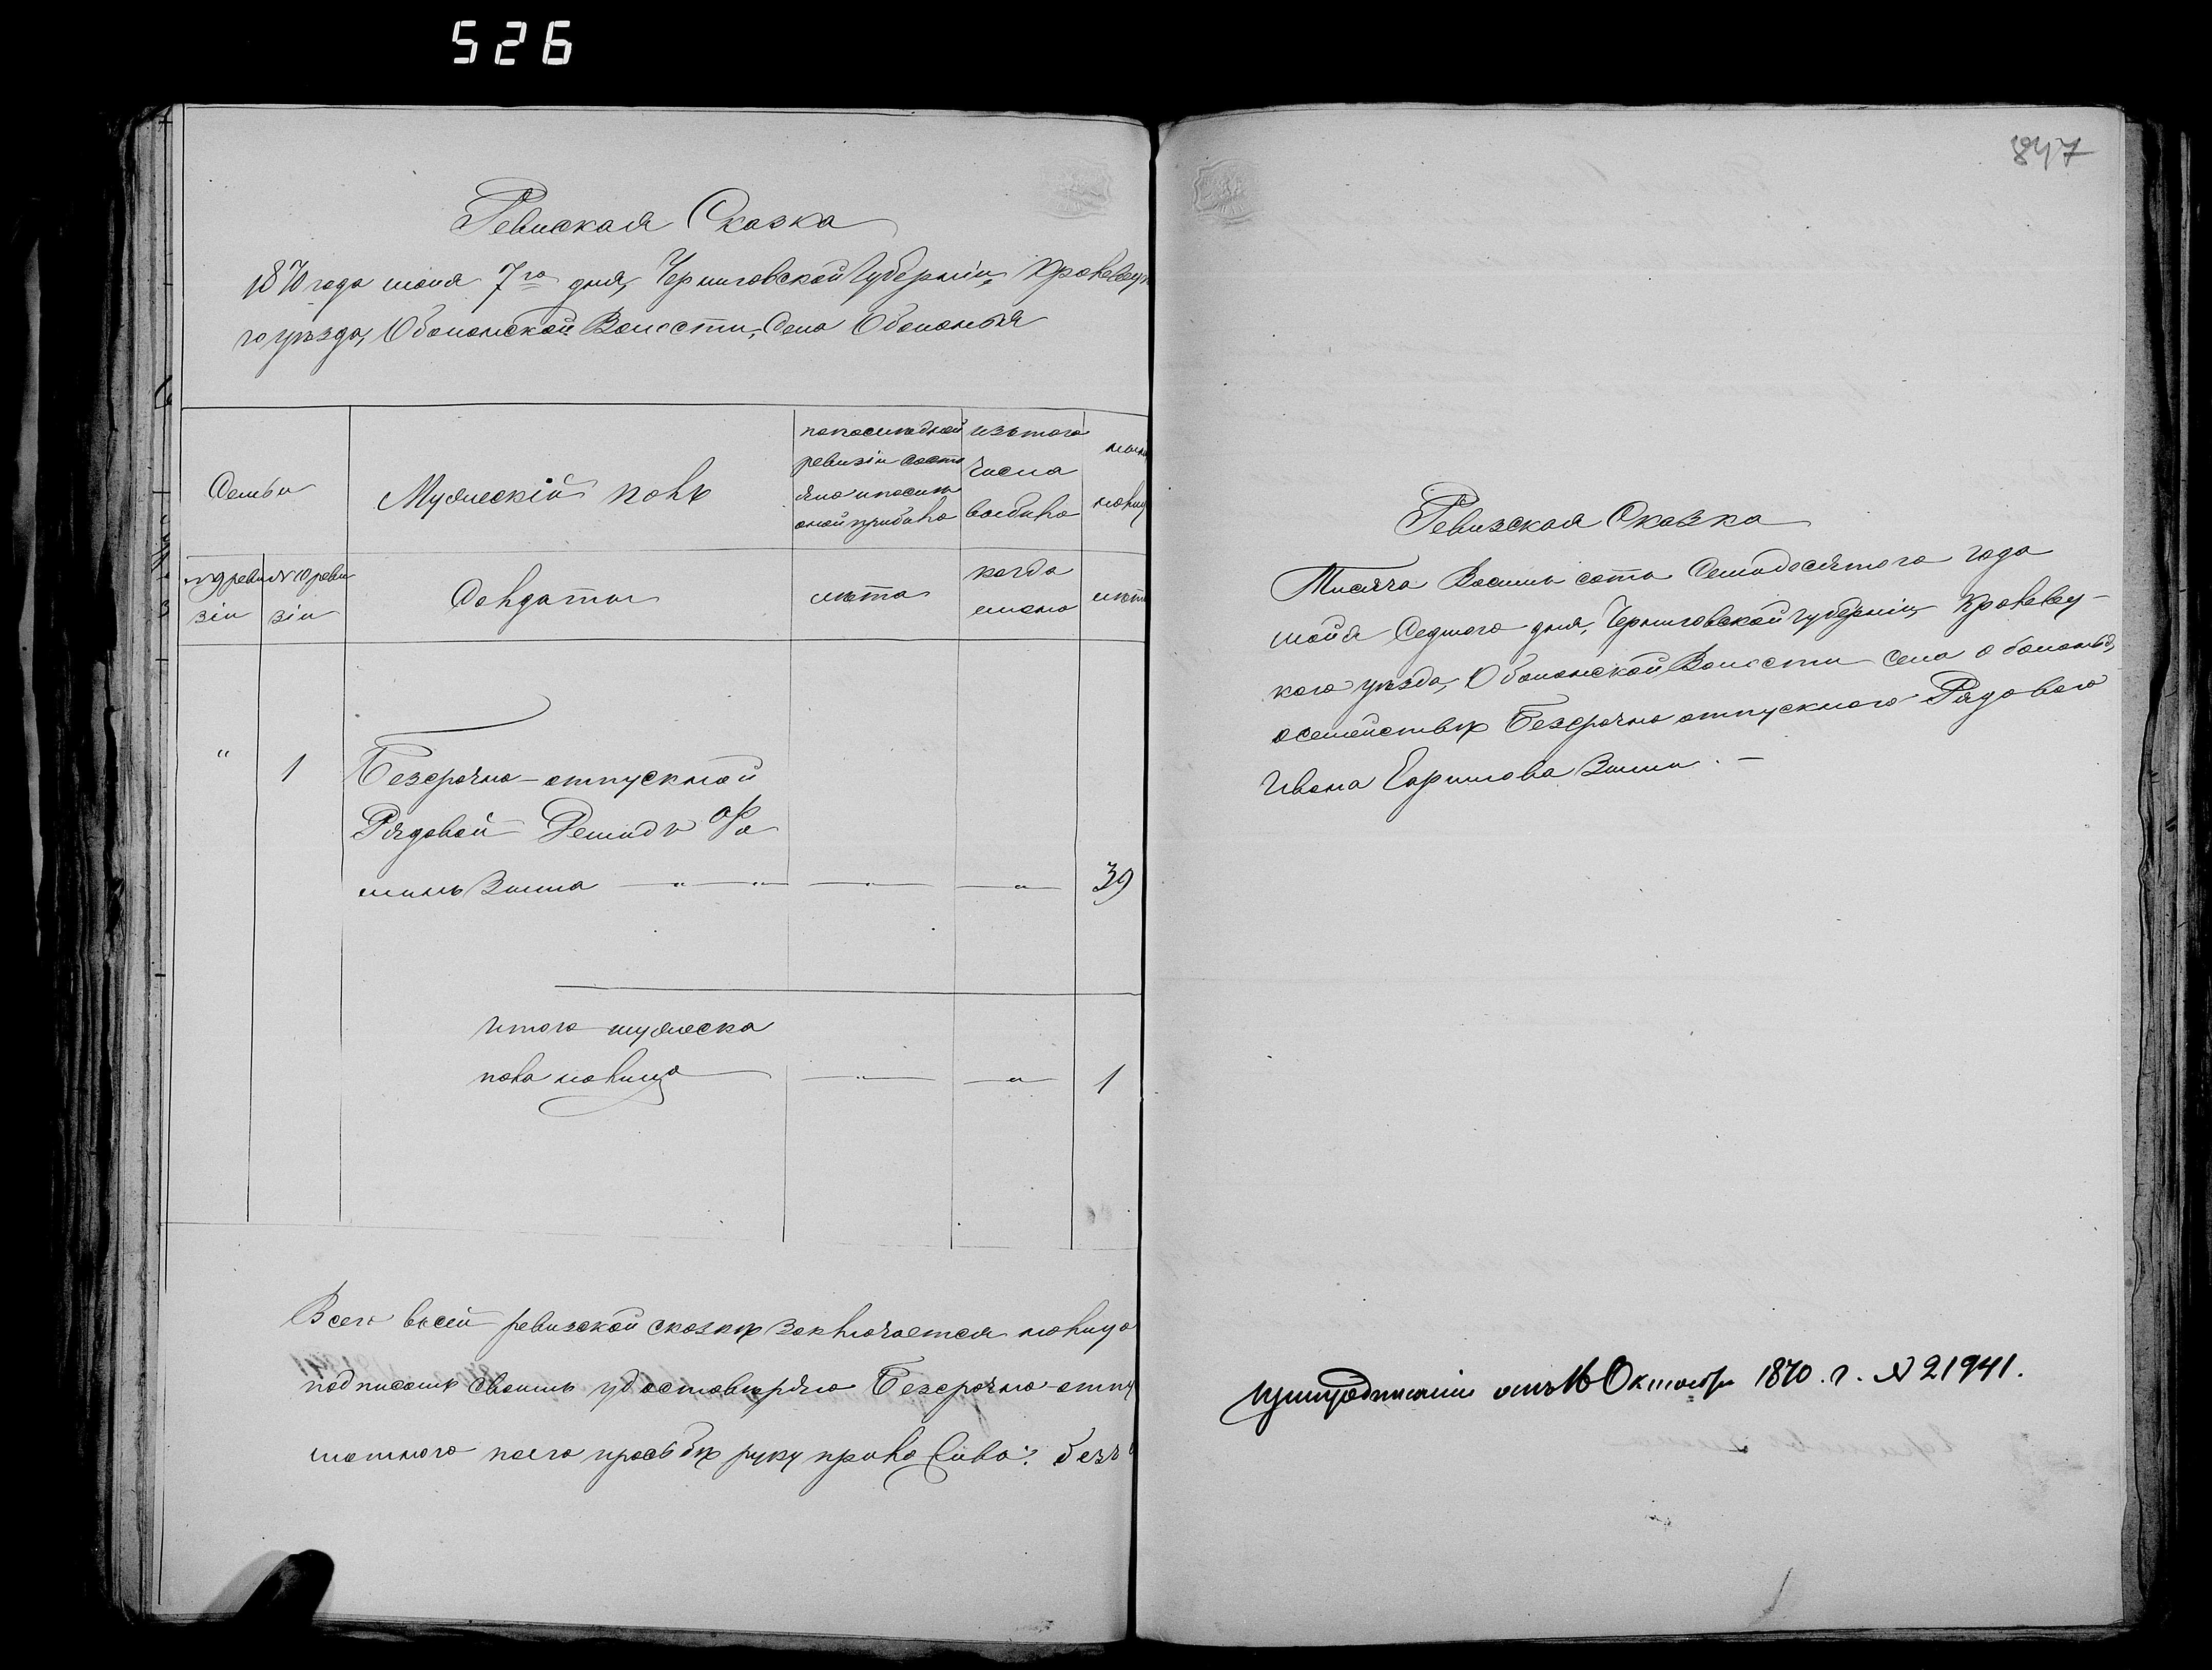 526
847
Ревиская Сказка
1870 года Июня 7го дня, Черниговской Губерніи, Кролевец
го уѣзда, Оболонской Волости, Села Оболонья
Семьи
Мужескій полъ
по последней
ревизіи состо
яло и после
оной прибыло
изътого
числа
выбыло
ныне
на лицо
№ 9 реви
зіи
№ 10 реви
зіи
Солдаты
лѣта
когда
именно
лѣта
" 1 Безсрочно-отпускной
Рядовой Демидъ Фо
минъ Зинна — " — " — " — " — 39
Итого мужеска
пола налицо — " — " — 1
Всего въсей ревизской сказкѣ Заключается налицо
подписомъ своимъ удостовѣряю Безсрочно-отпу
по его прозьбѣ руку прило
Ревизская Сказка
Тисяча Восимь сотъ Семидесятого года
Июня Седмого дня, Черниговской Губерніи, Кролевец-
кого уѣзда, Оболонской Волости Села Оболонья,
осемействѣ Безсрочно отпускного Рядового
Ивана Ефимова Зинни. —
При предписаніи отъ 16 Октября 1870. г. № 21941.